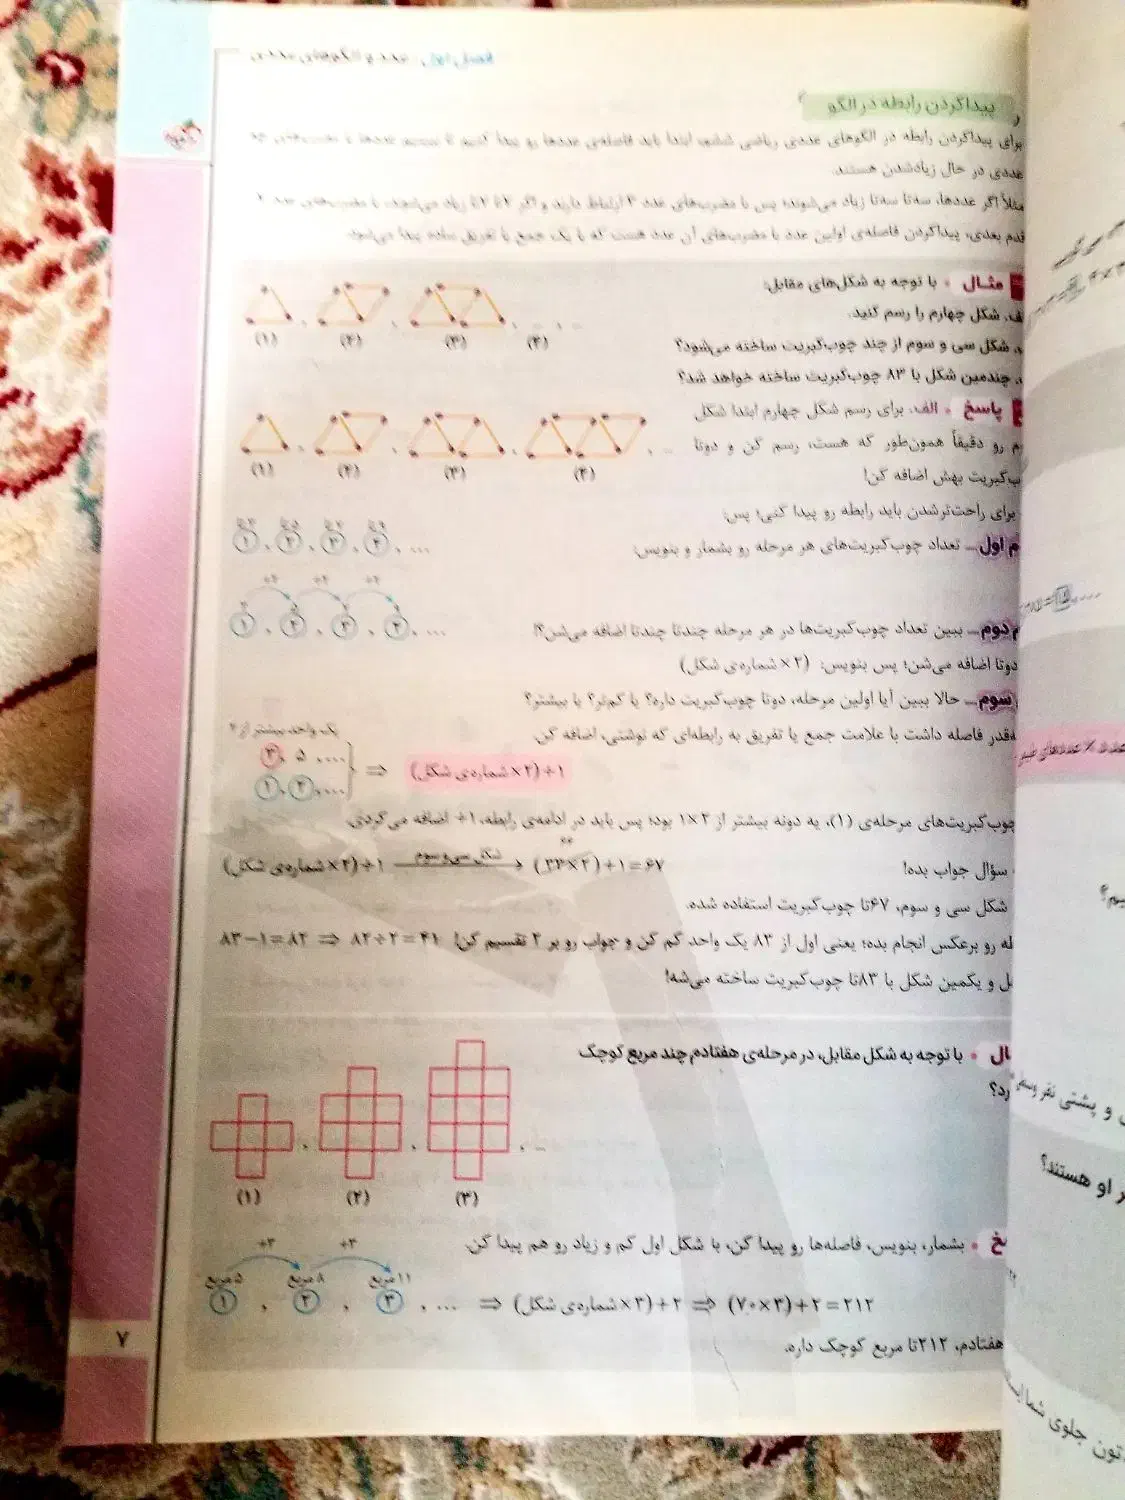 فصل اول: عدد و الگوهای عددی
پیداکردن رابطه در الگو
برای پیداکردن رابطه در الگوهای عددی ریاضی ششم، ابتدا باید فاصله‌ی عددها رو پیدا کنیم تا ببینیم عددها با مضرب‌های چه
عددی در حال زیادشدن هستند.
مثلاً اگر عددها، سه‌تا سه‌تا زیاد می‌شوند؛ پس با مضرب‌های عدد ۳ ارتباط دارند و اگر ۲تا ۲تا زیاد می‌شوند، با مضرب‌های عدد ۲
قدم بعدی، پیداکردن فاصله‌ی اولین عدد با مضرب‌های آن عدد هست که با یک جمع یا تفریق ساده پیدا می‌شود.
مثال • با توجه به شکل‌های مقابل:
الف. شکل چهارم را رسم کنید.
شکل سی و سوم از چند چوب‌کبریت ساخته می‌شود؟
چندمین شکل با ۸۳ چوب‌کبریت ساخته خواهد شد؟
(۱) , (۲) , (۳) , (۴) , ...
پاسخ • الف. برای رسم شکل چهارم ابتدا شکل
رو دقیقاً همون‌طور که هست، رسم کن و دوتا
چوب‌کبریت بهش اضافه کن!
(۱) , (۲) , (۳) , (۴) , ...
برای راحت‌ترشدن باید رابطه رو پیدا کنی؛ پس:
اول ... تعداد چوب‌کبریت‌های هر مرحله رو بشمار و بنویس:
۳تا ۵تا ۷تا ۹تا
۱ , ۲ , ۳ , ۴ , ...
+۲ +۲ +۲
۱ , ۲ , ۳ , ۴ , ...
دوم ... ببین تعداد چوب‌کبریت‌ها در هر مرحله چندتا چندتا اضافه می‌شن؟!
دوتا اضافه می‌شن؛ پس بنویس: (۲ × شماره‌ی شکل)
سوم ... حالا ببین آیا اولین مرحله، دوتا چوب‌کبریت داره؟ یا کم‌تر؟ یا بیشتر؟
فاصله داشت با علامت جمع یا تفریق به رابطه‌ای که نوشتی، اضافه کن.
یک واحد بیشتر از ۲
۳ , ۵ , ...
۱ , ۲ , ... ⇒ (۲ × شماره‌ی شکل) + ۱
چوب‌کبریت‌های مرحله‌ی (۱)، یه دونه بیشتر از ۱×۲ بود؛ پس باید در ادامه‌ی رابطه، ۱+ اضافه می‌کردی.
سؤال جواب بده!
(۲ × شماره‌ی شکل) + ۱ شکل سی و سوم → (۳۳×۲) + ۱ = ۶۷
۶۶
شکل سی و سوم، ۶۷تا چوب‌کبریت استفاده شده.
رو برعکس انجام بده؛ یعنی اول از ۸۳ یک واحد کم کن و جواب رو بر ۲ تقسیم کن! ۸۳−۱=۸۲ ⇒ ۸۲÷۲=۴۱
و یکمین شکل با ۸۳تا چوب‌کبریت ساخته می‌شه!
• با توجه به شکل مقابل، در مرحله‌ی هفتادم چند مربع کوچک
(۱) , (۲) , (۳) , ...
• بشمار، بنویس، فاصله‌ها رو پیدا کن، با شکل اول کم و زیاد رو هم پیدا کن.
+۳ +۳
۵ مربع ۸ مربع ۱۱ مربع
۱ , ۲ , ۳ , ... ⇒ (۳ × شماره‌ی شکل) + ۲ ⇒ (۷۰×۳) + ۲ = ۲۱۲
هفتادم، ۲۱۲تا مربع کوچک داره.
۷
و پشتی نفر وسطی
او هستند؟
جلوی شما